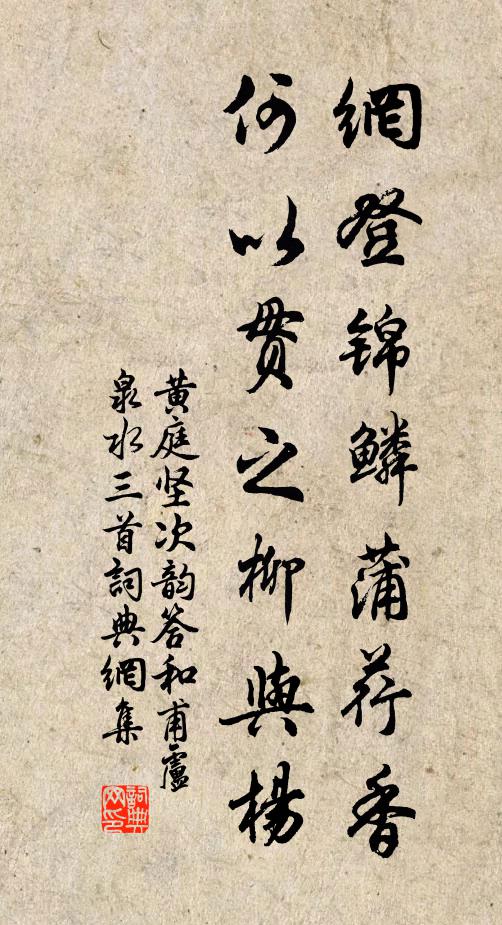 網登錦鱗蒲荇香
何以貫之柳與楊
黄庭坚次韵答和甫盧
泉水三首詞典網集
詞典网印